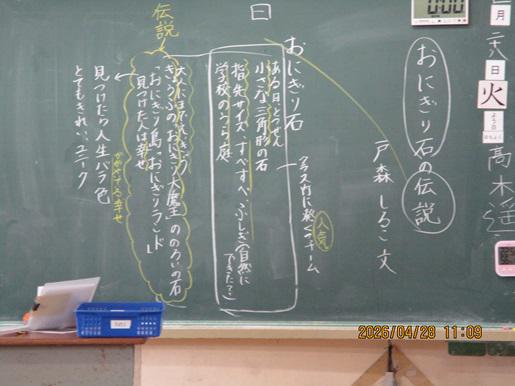 月
二十八
日
火
高木遥
おにぎり石の伝説
戸森しるこ 文
日
おにぎり石
ある日とつぜん
小さな三角形の石
指先サイズ すべすべ ふしぎ(自然に
できた?)
学校のうら庭
人気
クラス内に続々ブーム
伝説
きょうふのおにぎり大魔王ののろいの石
おにぎり島"おにぎりランド"
見つけた人は幸せ
見つけたら人生バラ色
とてもきれい、ユニーク
2026/04/28 11:09